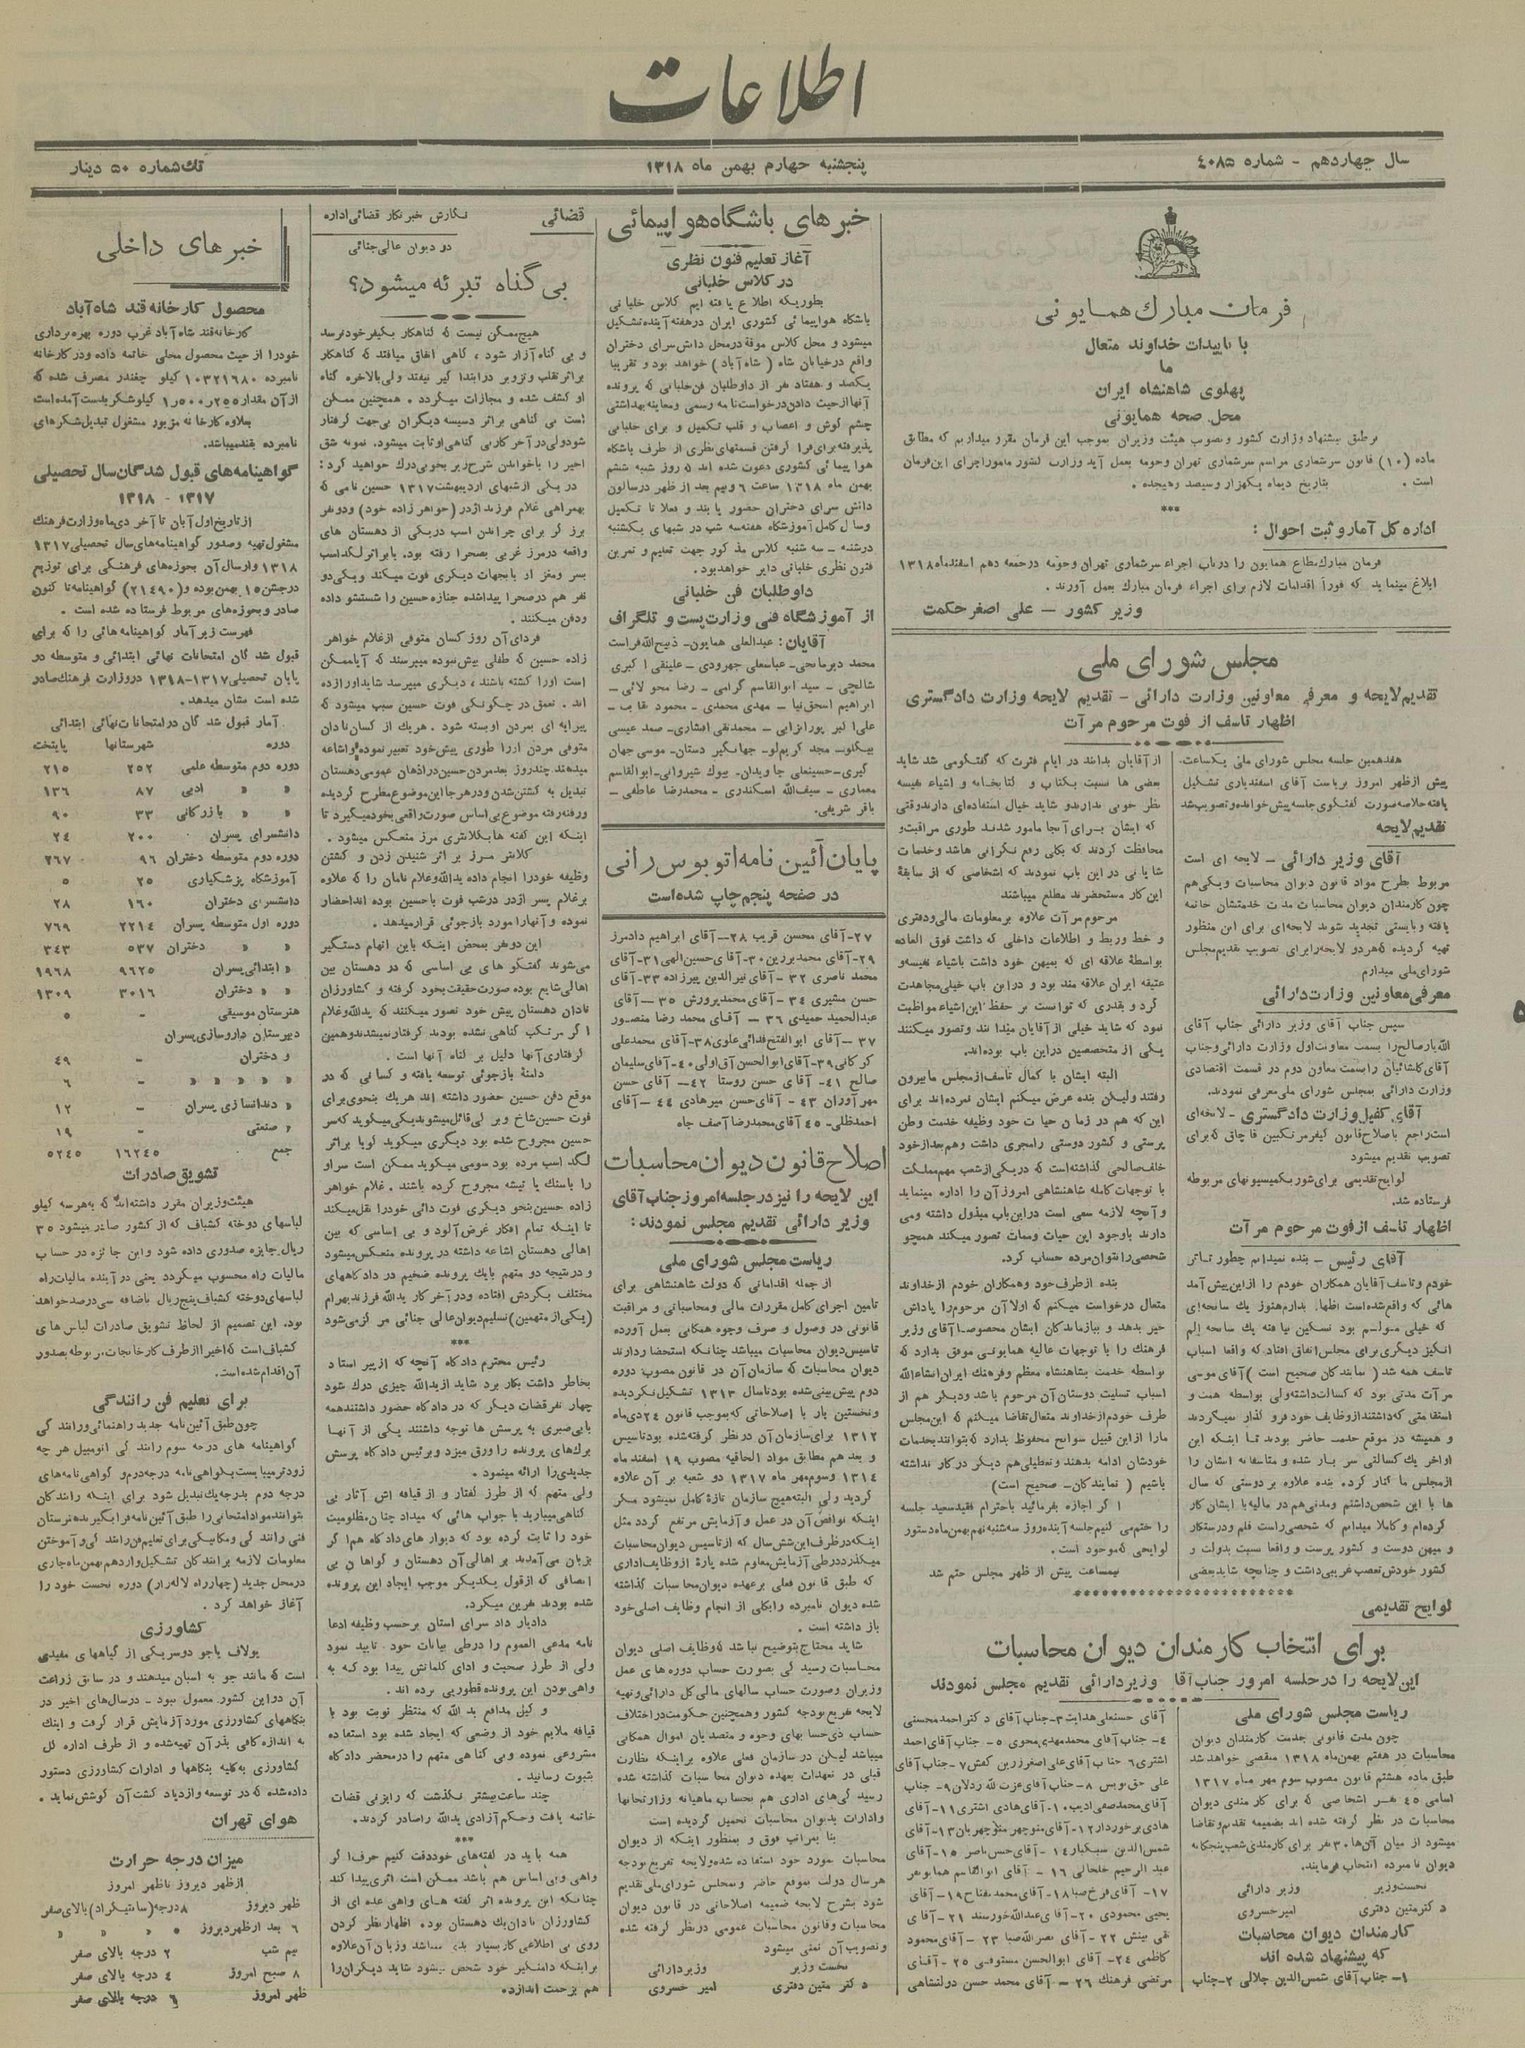 اطلاعات
سال چهاردهم - شماره ٤٠٨٥
پنجشنبه چهارم بهمن ماه ۱۳۱۸
تك شماره ۵۰ دینار
فرمان مبارك همایونی
با تاییدات خداوند متعال
ما
پهلوی شاهنشاه ایران
محل صحه همایونی
برطبق پیشنهاد وزارت کشور و تصویب هیئت وزیران بموجب این فرمان مقرر میداریم که مطابق
ماده (۱۰) قانون سرشماری مراسم سرشماری تهران وحومه بعمل آید وزارت کشور مامور اجرای این فرمان
است . بتاریخ دیماه یکهزار و سیصد و هیجده .
***
اداره کل آمار و ثبت احوال :
فرمان مبارك مطاع همایون را در باب اجراء سرشماری تهران وحومه در جمعه دهم اسفندماه ۱۳۱۸
ابلاغ مینماید که فوراً اقدامات لازم برای اجراء فرمان مبارك بعمل آورند .
وزیر کشور — علی اصغر حکمت
مجلس شورای ملی
تقدیم لایحه و معرفی معاونین وزارت دارائی - تقدیم لایحه وزارت دادگستری
اظهار تاسف از فوت مرحوم مرآت
هفدهمین جلسه مجلس شورای ملی یکساعت
پیش ازظهر امروز بریاست آقای اسفندیاری تشکیل
یافته خلاصه صورت گفتگوی جلسه پیش خوانده و تصویب شد
تقدیم لایحه
آقای وزیر دارائی - لایحه ای است
مربوط بطرح مواد قانون دیوان محاسبات ویکی هم
چون کارمندان دیوان محاسبات مدت خدمتشان خاتمه
یافته و بایستی تجدید شوند لایحه‌ای برای این منظور
تهیه گردیده که هر دو لایحه برای تصویب تقدیم مجلس
شورای ملی میدارم
معرفی معاونین وزارت دارائی
سپس جناب آقای وزیر دارائی جناب آقای
اللهیار صالح را بسمت معاونت اول وزارت دارائی و جناب
آقای گلشائیان را بسمت معاون دوم در قسمت اقتصادی
وزارت دارائی بمجلس شورای ملی معرفی نمودند .
آقای کفیل وزارت دادگستری - لایحه‌ای
است راجع باصلاح قانون کیفر مرتکبین قاچاق که برای
تصویب تقدیم میشود
لوایح تقدیمی برای شور بکمیسیونهای مربوطه
فرستاده شد .
اظهار تاسف از فوت مرحوم مرآت
آقای رئیس - بنده نمیدانم چطور تاثر
خودم وتاسف آقایان همکاران خودم را از این پیش آمد
هائی که واقع شده است اظهار بدارم هنوز یك سانحه‌ای
که خیلی مولم بود تسکین نیافته یك سانحه الم
انگیز دیگری برای مجلس اتفاق افتاد که واقعا اسباب
تاسف همه شد ( نمایندگان صحیح است ) آقای موسی
مرآت مدتی بود که کسالت داشته ولی بواسطه همت و
استقامتی که داشتند از وظایف خود فرو گذار نمیکردند
و همیشه در موقع خدمت حاضر بودند تا اینکه این
اواخر یك کسالتی سر بار شده و متاسفانه ایشان را
از مجلس ما کنار کرد . بنده علاوه بر دوستی که سال
ها با این شخص داشتم ومدتی هم در مالیه با ایشان کار
کرده‌ام و کاملا میدانم که شخصی راست قلم و درستکار
و میهن دوست و کشور پرست و واقعا نسبت بدولت و
کشور خودش تعصب غریبی داشت و چنانچه شاید بعضی
از آقایان بدانند در ایام فترت که گفتگومی شد شاید
بعضی ها نسبت بکتاب و کتابخانه و اشیاء نفیسه
نظر خوبی ندارند و شاید خیال استفاده‌ای دارند وقتی
که ایشان برای آنجا مامور شدند طوری مراقبت و
محافظت کردند که بکلی رفع نگرانی ها شد و خدمات
شایانی در این باب نمودند که اشخاصی که از سابقهٔ
این کار مستحضرند مطلع میباشند
مرحوم مرآت علاوه بر معلومات مالی و دفتری
و خط و ربط و اطلاعات داخلی که داشت فوق العاده
بواسطهٔ علاقه ای که بمیهن خود داشت باشیاء نفیسه و
عتیقه ایران علاقه مند بود و در این باب خیلی مجاهدت
کرد و بقدری که توانست بر حفظ این اشیاء مواظبت
نمود که شاید خیلی از آقایان میدانند و تصور میکنند
یکی از متخصصین در این باب بوده‌اند .
البته ایشان با کمال تاسف از مجلس ما بیرون
رفتند ولیکن بنده عرض میکنم ایشان نمرده‌اند برای
این که هم در زمان حیات خود وظیفه خدمت وطن
پرستی و کشور دوستی را مجری داشت و هم بعد از خود
خلف صالحی گذاشته است که در یکی از شعب مهم مملکت
با توجهات کامله شاهنشاهی امروز آن را اداره مینماید
و آنچه لازمه سعی است در این باب مبذول داشته و می
دارند باوجود این حیات وممات تصور میکند همچو
شخصی را نتوان مرده حساب کرد .
بنده از طرف خود و همکاران خودم از خداوند
متعال درخواست میکنم که اولا آن مرحوم را پاداش
خیر بدهد و ببازماندگان ایشان مخصوصا آقای وزیر
فرهنگ را با توجهات عالیه همایونی موفق بدارد که
بواسطه خدمت بشاهنشاه معظم و فرهنگ ایران انشاء الله
اسباب تسلیت دوستان آن مرحوم باشد ودیگر هم از
طرف خودم از خداوند متعال تقاضا میکنم که این مجلس
مارا از این قبیل سوانح محفوظ بدارد که بتوانند بخدمات
خودشان ادامه بدهند و تعطیلی هم دیگر در کار نداشته
باشیم ( نمایندگان- صحیح است )
اگر اجازه بفرمائید باحترام فقید سعید جلسه
را ختم می کنیم جلسه آینده روز سه شنبه نهم بهمن ماه دستور
لوایحی که موجود است .
نیمساعت پیش از ظهر مجلس ختم شد
لوایح تقدیمی
برای انتخاب کارمندان دیوان محاسبات
این لایحه را در جلسه امروز جناب آقا وزیر دارائی تقدیم مجلس نمودند
ریاست مجلس شورای ملی
چون مدت قانونی خدمت کارمندان دیوان
محاسبات در هفتم بهمن ماه ۱۳۱۸ منقضی خواهد شد
طبق ماده هشتم قانون مصوب سوم مهر ماه ۱۳۱۷
اسامی ٤٥ نفر اشخاصی که برای کارمندی دیوان
محاسبات در نظر گرفته شده اند بضمیمه تقدیم و تقاضا
میشود از میان آن‌ها ۳۰ نفر برای کارمندی شعب پنجگانه
دیوان نامبرده انتخاب فرمایند .
نخست وزیر وزیر دارائی
دکتر متین دفتری امیر خسروی
کارمندان دیوان محاسبات
که پیشنهاد شده اند
۱- جناب آقای شمس الدین جلالی ۲-جناب
آقای حسنعلی هدایت ۳-جناب آقای دکتر احمد محسنی
٤- جناب آقای محمد مهدی محوی ٥- جناب آقای احمد
اشتری ٦ جناب آقای علی اصغر زرین کفش ۷-جناب آقای
علی حق نویس ۸- جناب آقای عزت الله زدلان ۹- جناب
آقای محمد صفی ادیب ۱۰-آقای هادی اشتری ۱۱-آقای
هادی برخوردار ۱۲- آقای منوچهر منوچهریان ۱۳-آقای
شمس الدین سبکبار ۱٤- آقای حسن ناصر ۱٥- آقای
عبد الرحیم خلخالی ۱٦ - آقای ابوالقاسم همایونفر
۱۷- آقای فرخ صبا ۱۸-آقای محمد مفتاح ۱۹-آقای
یحیی محمودی ۲۰-آقای عبدالله خورسند ۲۱-آقای
تقی بینش ۲۲- آقای نصر الله صبا ۲۳ -آقای محمود
کاظمی ۲٤- آقای ابوالحسن مستوفی ۲٥ -آقای
مرتضی فرهنگ ۲٦ — آقای محمد حسن دولتشاهی
خبرهای باشگاه هواپیمائی
آغاز تعلیم فنون نظری
در کلاس خلبانی
بطوریکه اطلاع یافته ایم کلاس خلبانی
باشگاه هواپیمائی کشوری ایران در هفته آینده تشکیل
میشود و محل کلاس موقة در محل دانش سرای دختران
واقع در خیابان شاه ( شاه آباد ) خواهد بود و تقریبا
یکصد و هفتاد نفر از داوطلبان فن خلبانی که پرونده
آنها از حیث دادن درخواست نامه رسمی و معاینه بهداشتی
چشم گوش و اعصاب و قلب تکمیل و برای خلبانی
پذیرفته برای فرا گرفتن قسمتهای نظری از طرف باشگاه
هواپیمائی کشوری دعوت شده اند که روز شنبه ششم
بهمن ماه ۱۳۱۸ ساعت ٦ و نیم بعد از ظهر در سالون
دانش سرای دختران حضور یابند و فعلا تا تکمیل
وسائل کامل آموزشگاه هفته سه شب در شبهای یکشنبه
دوشنبه - سه شنبه کلاس مذکور جهت تعلیم و تمرین
فنون نظری خلبانی دایر خواهد بود .
داوطلبان فن خلبانی
از آموزشگاه فنی وزارت پست و تلگراف
آقایان : عبدالعلی همایون- ذبیح الله فراست
محمد دیرمانجی- عباسعلی جهرودی - علینقی اکبری
شالچی - سید ابوالقاسم گرامی - رضا محولائی -
ابراهیم اسحق نیا - مهدی محمدی - محمود
علی اکبر پور انزابی - محمدتقی افشاری - صمد عیسی
بیکلو- مجد کریم لو- جهانگیر دستان- موسی جهان
گیری- حسینعلی جاویدان- بیوك شیروانی- ابوالقاسم
معماری - سیف الله اسکندری - محمدرضا عاطفی -
باقر شریفی .
پایان آئین نامه اتوبوس رانی
در صفحه پنجم چاپ شده است
۲۷-آقای محسن قریب ۲۸—آقای ابراهیم دادمرز
۲۹-آقای محمد برزین ۳۰-آقای حسین الهی ۳۱-آقای
محمد ناصری ۳۲ -آقای نیرالدین پیرزاده ۳۳-آقای
حسن مشیری ۳٤ -آقای محمد پرورش ۳٥ —آقای
عبدالحمید حمیدی ۳٦ — آقای محمد رضا منصور
۳۷ — آقای ابوالفتح فدائی علوی ۳۸-آقای محمدعلی
کرکانی ۳۹-آقای ابوالحسن آق اولی ٤۰-آقای سلیمان
صالح ٤۱- آقای حسن روستا ٤۲— آقای حسن
مهرآوران ٤۳ - آقای حسن میرهادی ٤٤ — آقای
احمد ظلی- ٤٥ آقای محمدرضا آصف جاه
اصلاح قانون دیوان محاسبات
این لایحه را نیز در جلسه امروز جناب آقای
وزیر دارائی تقدیم مجلس نمودند :
ریاست مجلس شورای ملی
از جمله اقداماتی که دولت شاهنشاهی برای
تامین اجرای کامل مقررات مالی و محاسباتی و مراقبت
قانونی در وصول و صرف وجوه همگانی بعمل آورده
تاسیس دیوان محاسبات میباشد چنانکه استحضار دارند
دیوان محاسبات که سازمان آن در قانون مصوب دوره
دوم پیش بینی شده بود تا سال ۱۳۱۳ تشکیل نگردیده
و نخستین بار با اصلاحاتی که بموجب قانون ۲٤ دی ماه
۱۳۱۲ برای سازمان آن در نظر گرفته شده بود تاسیس
و بعد هم مطابق مواد الحاقیه مصوب ۱۹ اسفند ماه
۱۳۱٤ و سوم مهر ماه ۱۳۱۷ دو شعبه بر آن علاوه
گردید ولی البته هیچ سازمان تازهٔ کامل نمیشود مگر
اینکه نواقص آن در عمل و آزمایش مرتفع گردد مثل
اینکه در ظرف این شش سال که از تاسیس دیوان محاسبات
میگذرد در طی آزمایش معلوم شده پارهٔ از وظایف اداری
که طبق قانون فعلی بر عهده دیوان محاسبات گذاشته
شده دیوان نامبرده را بکلی از انجام وظایف اصلی خود
باز داشته است .
شاید محتاج بتوضیح نباشد که وظایف اصلی دیوان
محاسبات رسیدگی بصورت حساب دوره های عمل
وزیران و صورت حساب سالهای مالی کل دارائی و تهیه
لایحه تفریغ بودجه کشور و همچنین حکومت در اختلاف
حساب ذی حسابهای وجوه و متصدیان اموال همگانی
میباشد لیکن در سازمان فعلی علاوه بر اینکه نظارت
قبلی در تعهدات بعهده دیوان محاسبات گذاشته شده
رسیدگی‌های اداری هم بحساب ماهیانه وزارتخانها
و ادارات بدیوان محاسبات تحمیل گردیده است
بنا بمراتب فوق و بمنظور اینکه از دیوان
محاسبات مورد خود استفاده شده و لایحه تفریغ بودجه
هر سال دولت بموقع حاضر و بمجلس شورای ملی تقدیم
شود بشرح لایحه ضمیمه اصلاحاتی در قانون دیوان
محاسبات و قانون محاسبات عمومی در نظر گرفته شده
و تصویب آن تمنی میشود
نخست وزیر وزیر دارائی
دکتر متین دفتری امیر خسروی
قضائی
نگارش خبرنگار قضائی اداره
در دیوان عالی جنائی
بی گناه تبرئه میشود؟
هیچ ممکن نیست که گناهکار بکیفر خود نرسد
و بی گناه آزار شود ، گاهی اتفاق میافتد که گناهکار
براثر تقلب و تزویر در ابتدا گیر نیفتد ولی بالاخره گناه
او کشف شده و مجازات میگردد . همچنین ممکن
است بی گناهی بر اثر دسیسه دیگران بی جهت گرفتار
شود ولی در آخر کار بی گناهی او ثابت میشود . نمونه شق
اخیر را با خواندن شرح زیر بخوبی درك خواهید کرد :
در یکی از شبهای اردیبهشت ۱۳۱۷ حسین نامی که
بهمراهی غلام فرزند اژدر (خواهر زاده خود) و دو نفر
برزگر برای چراندن اسب در یکی از دهستان های
واقعه در مرز غربی بصحرا رفته بود . یا براثر لگد اسب
بسر و مغز او یا بجهات دیگری فوت میکند و یکی دو
نفر هم در صحرا پیدا شده جنازه حسین را شستشو داده
و دفن میکنند .
فردای آن روز کسان متوفی از غلام خواهر
زاده حسین که طفلی بیش نبوده میپرسند که آیا ممکن
است او را کشته باشند ، دیگری میپرسد شاید او را زده
اند . تعمق در چگونگی فوت حسین سبب میشود که
پیرایه ای بمردن او بسته شود . هر یك از کسان نادان
متوفی مردن او را طوری پیش خود تعبیر نموده و اشاعه
میدهند چند روز بعد مردن حسین در اذهان عمومی دهستان
تبدیل به کشتن شدن و در هر جا این موضوع مطرح گردیده
و رفته رفته موضوع بی اساس صورت واقعی بخود میگیرد تا
اینکه این گفته ها بکلانتری مرز منعکس میشود .
کلانتر مرز بر اثر شنیدن زدن و کشتن
وظیفه خود را انجام داده یدالله و غلام نامان را که علاوه
بر غلام پسر اژدر در شب فوت با حسین بوده اند احضار
نموده و آنها را مورد بازجوئی قرار میدهد .
این دو نفر بمحض اینکه باین اتهام دستگیر
می‌شوند گفتگوهای بی اساسی که در دهستان بین
اهالی شایع بوده صورت حقیقت بخود گرفته و کشاورزان
نادان دهستان پیش خود تصور میکنند که یدالله و غلام
اگر مرتکب گناهی نشده بودند گرفتار نمیشدند و همین
گرفتاری آنها دلیل بر گناه آنها است .
دامنهٔ بازجوئی توسعه یافته و کسانی که در
موقع دفن حسین حضور داشته اند هر یك بنحوی برای
فوت حسین شاخ و برگی قائل میشوند یکی میگوید که سر
حسین مجروح شده بود دیگری میگوید گویا براثر
لگد اسب مرده بود سومی میگوید ممکن است سر او
را با سنگ یا تیشه مجروح کرده باشند . غلام خواهر
زاده حسین بنحو دیگری فوت دائی خود را نقل میکند
تا اینکه تمام افکار غرض آلود و بی اساسی که بین
اهالی دهستان اشاعه داشته در پرونده منعکس میشود
و در نتیجه دو متهم با یك پرونده ضخیم در دادگاههای
مختلف بگردش افتاده و در آخر کار یدالله فرزند بهرام
(یکی از متهمین) تسلیم دیوان عالی جنائی مرکز می‌شود
***
رئیس محترم دادگاه آنچه که از پیر استاد
بخاطر داشت بکار برد شاید از یدالله چیزی درك شود
چهار نفر قضات دیگر که در دادگاه حضور داشتند همه
با بی صبری به پرسش ها توجه داشتند یکی از آنها
برك‌های پرونده را ورق میزد و برئیس دادگاه پرسش
جدیدی را ارائه مینمود .
ولی متهم که از طرز گفتار و از قیافه اش آثار بی
گناهی میبارید با جواب هائی که میداد چنان مظلومیت
خود را ثابت کرده بود که دیوار های دادگاه هم اگر
بزبان می‌آمدند بر اهالی آن دهستان و گواهان بی
انصافی که از قول یکدیگر موجب ایجاد این پرونده
شده بودند نفرین میکرد .
دادیار داد سرای استان برحسب وظیفه ادعا
نامه مدعی العموم را در طی بیانات خود تایید نمود
ولی از طرز صحبت و ادای کلماتش پیدا بود که به
واهی بودن این پرونده قطور پی برده اند .
وکیل مدافع یدالله که منتظر نوبت بود با
قیافه ملایم خود از وضعی که ایجاد شده بود استفاده
مشروعی نموده و بی گناهی متهم را در محضر دادگاه
بثبوت رسانید .
چند ساعت بیشتر نگذشت که رایزنی قضات
خاتمه یافت و حکم آزادی یدالله را صادر کردند .
***
همه باید در گفته‌های خود دقت کنیم حرف اگر
واهی و بی اساس هم باشد ممکن است اثری پیدا کند
چنانکه این پرونده اثر گفته های واهی عده ای از
کشاورزان نادان یك دهستان بود . اظهار نظر کردن
روی بی اطلاعی کار بسیار بدی میباشد و زیان آن علاوه
براینکه دامنگیر خود شخص میشود شاید دیگران را
هم بزحمت اندازد .
خبرهای داخلی
محصول کارخانه قند شاه آباد
کارخانه قند شاه آباد غرب دوره بهره برداری
خود را از حیث محصول محلی خاتمه داده و در کارخانه
نامبرده ۱۰۳۲۱٦۸۰ کیلو چغندر مصرف شده که
از آن مقدار ۲٥٥ر۵۰۰ر۱ کیلو شکر بدست آمده است
بعلاوه کارخانه مزبور مشغول تبدیل شکرهای
نامبرده بقند میباشد .
گواهینامه‌های قبول شدگان سال تحصیلی
۱۳۱۷ - ۱۳۱۸
از تاریخ اول آبان تا آخر دی ماه وزارت فرهنگ
مشغول تهیه و صدور گواهینامه های سال تحصیلی ۱۳۱۷
۱۳۱۸ و ارسال آن بحوزه‌های فرهنگی برای توزیع
در جشن ۱٥ بهمن بوده و (۲۱٤۹۰) گواهینامه تا کنون
صادر و بحوزه‌های مربوط فرستاده شده است .
فهرست زیر آمار گواهینامه هائی را که برای
قبول شدگان امتحانات نهائی ابتدائی و متوسطه در
پایان تحصیلی ۱۳۱۷-۱۳۱۸ در وزارت فرهنگ صادر
شده است نشان میدهد .
آمار قبول شدگان در امتحانات نهائی ابتدائی
دوره شهرستانها پایتخت
دوره دوم متوسطه علمی ۲٥۲ ۲۱٥
« « ادبی ۸۷ ۱۳٦
« « بازرگانی ۳۳ ۹۰
دانشسرای پسران ۲۰۰ ۲٤
دوره دوم متوسطه دختران ۹٦ ۲٦۷
آموزشگاه پزشکیاری ۲٥ ٥
دانشسرای دختران ۱٦۰ ۲۸
دوره اول متوسطه پسران ۲۲۱٤ ۷٦۹
« « دختران ٥۳۷ ۳٤۳
« ابتدائی پسران ۹٦۲٥ ۱۹٦۸
« « دختران ۳۰۱٦ ۱۳۰۹
هنرستان موسیقی - ٥
دبیرستان داروسازی پسران
و دختران - ٤۹
« « « « « - ٦
« دندانسازی پسران - ۱۲
« صنعتی - ۱۹
جمع ۱٦۲٤٥ ٥۲٤٥
تشویق صادرات
هیئت وزیران مقرر داشته‌اند که به هر سه کیلو
لباسهای دوخته کشباف که از کشور صادر میشود ۳٥
ریال جایزه صدوری داده شود و این جائزه در حساب
مالیات راه محسوب میگردد یعنی در آینده مالیات راه
لباسهای دوخته کشباف پنج ریال باضافه سی درصد خواهد
بود . این تصمیم از لحاظ تشویق صادرات لباس های
کشباف است که اخیرا از طرف کارخانجات مربوطه بصدور
آن اقدام شده است .
برای تعلیم فن رانندگی
چون طبق آئین نامه جدید راهنمائی و رانندگی
گواهینامه های درجه سوم رانندگی اتومبیل هر چه
زودتر میبایست بگواهی نامه درجه دوم و گواهی نامه های
درجه دوم بدرجه یك تبدیل شود برای اینکه رانندگان
بتوانند مواد امتحانی را طبق آئین نامه فرا بگیرند هنرستان
فنی رانندگی و مکانیکی برای تعلیم فن رانندگی و آموختن
معلومات لازمه برانندگان تشکیل و از دهم بهمن ماه جاری
در محل جدید (چهارراه لاله زار) دوره نخست خود را
آغاز خواهد کرد .
کشاورزی
یولاف یا جو دوسر یکی از گیاههای مفیدی
است که مانند جو به اسبان میدهند و در سابق زراعت
آن در این کشور معمول نبود - در سال‌های اخیر در
بنگاههای کشاورزی مورد آزمایش قرار گرفت و اینك
به اندازه کافی بذر آن تهیه شده و از طرف اداره کل
کشاورزی به کلیه بنگاهها و ادارات کشاورزی دستور
داده شده که در توسعه و ازدیاد کشت آن کوشش نماید .
هوای تهران
میزان درجه حرارت
از ظهر دیروز تا ظهر امروز
ظهر دیروز ۸ درجه (سانتیگراد) بالای صفر
٦ بعد از ظهر دیروز ٥ « « «
نیم شب ۲ درجه بالای صفر
۸ صبح امروز ٤ درجه بالای صفر
ظهر امروز ٦ درجه بالای صفر